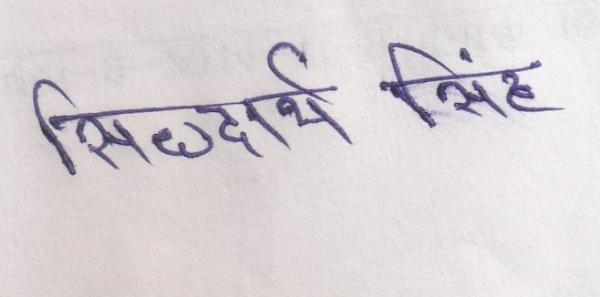 सिध्दार्थ सिंह